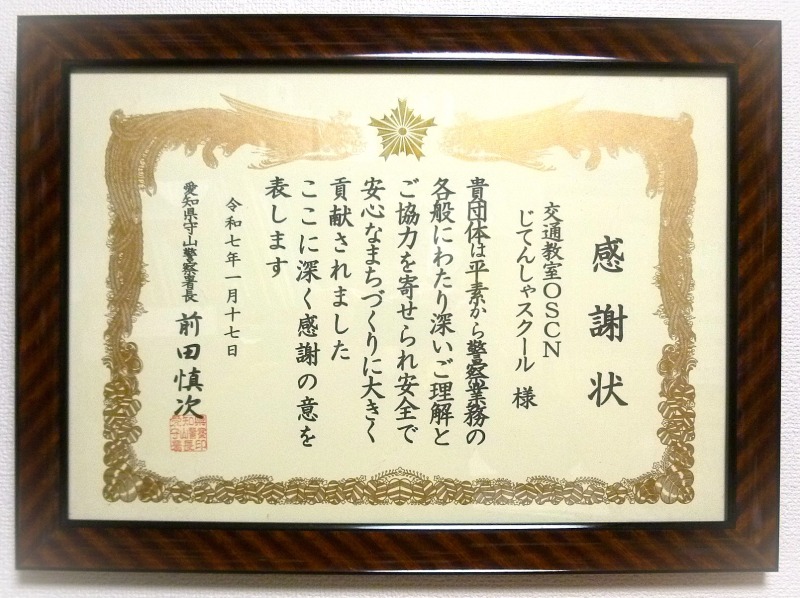 感謝状
交通教室OSCN
じてんしゃスクール 様
貴団体は平素から警察業務の
各般にわたり深いご理解と
ご協力を寄せられ安全で
安心なまちづくりに大きく
貢献されました
ここに深く感謝の意を
表します
令和七年一月十七日
愛知県守山警察署長 前田慎次